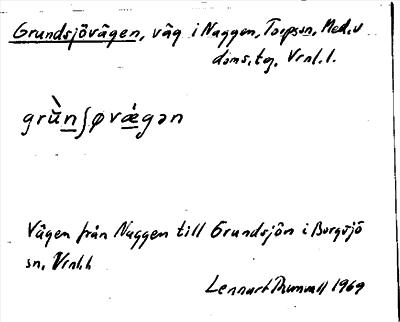 Grundsjövägen, väg i Naggen, Torpsn, Med.v
doms.tg. Vrnl.l.
grùn∫øvǽgən
Vägen från Naggen till Grundsjön i Borgsjö
sn, Vrnl.l
Lennart Thummel 1969